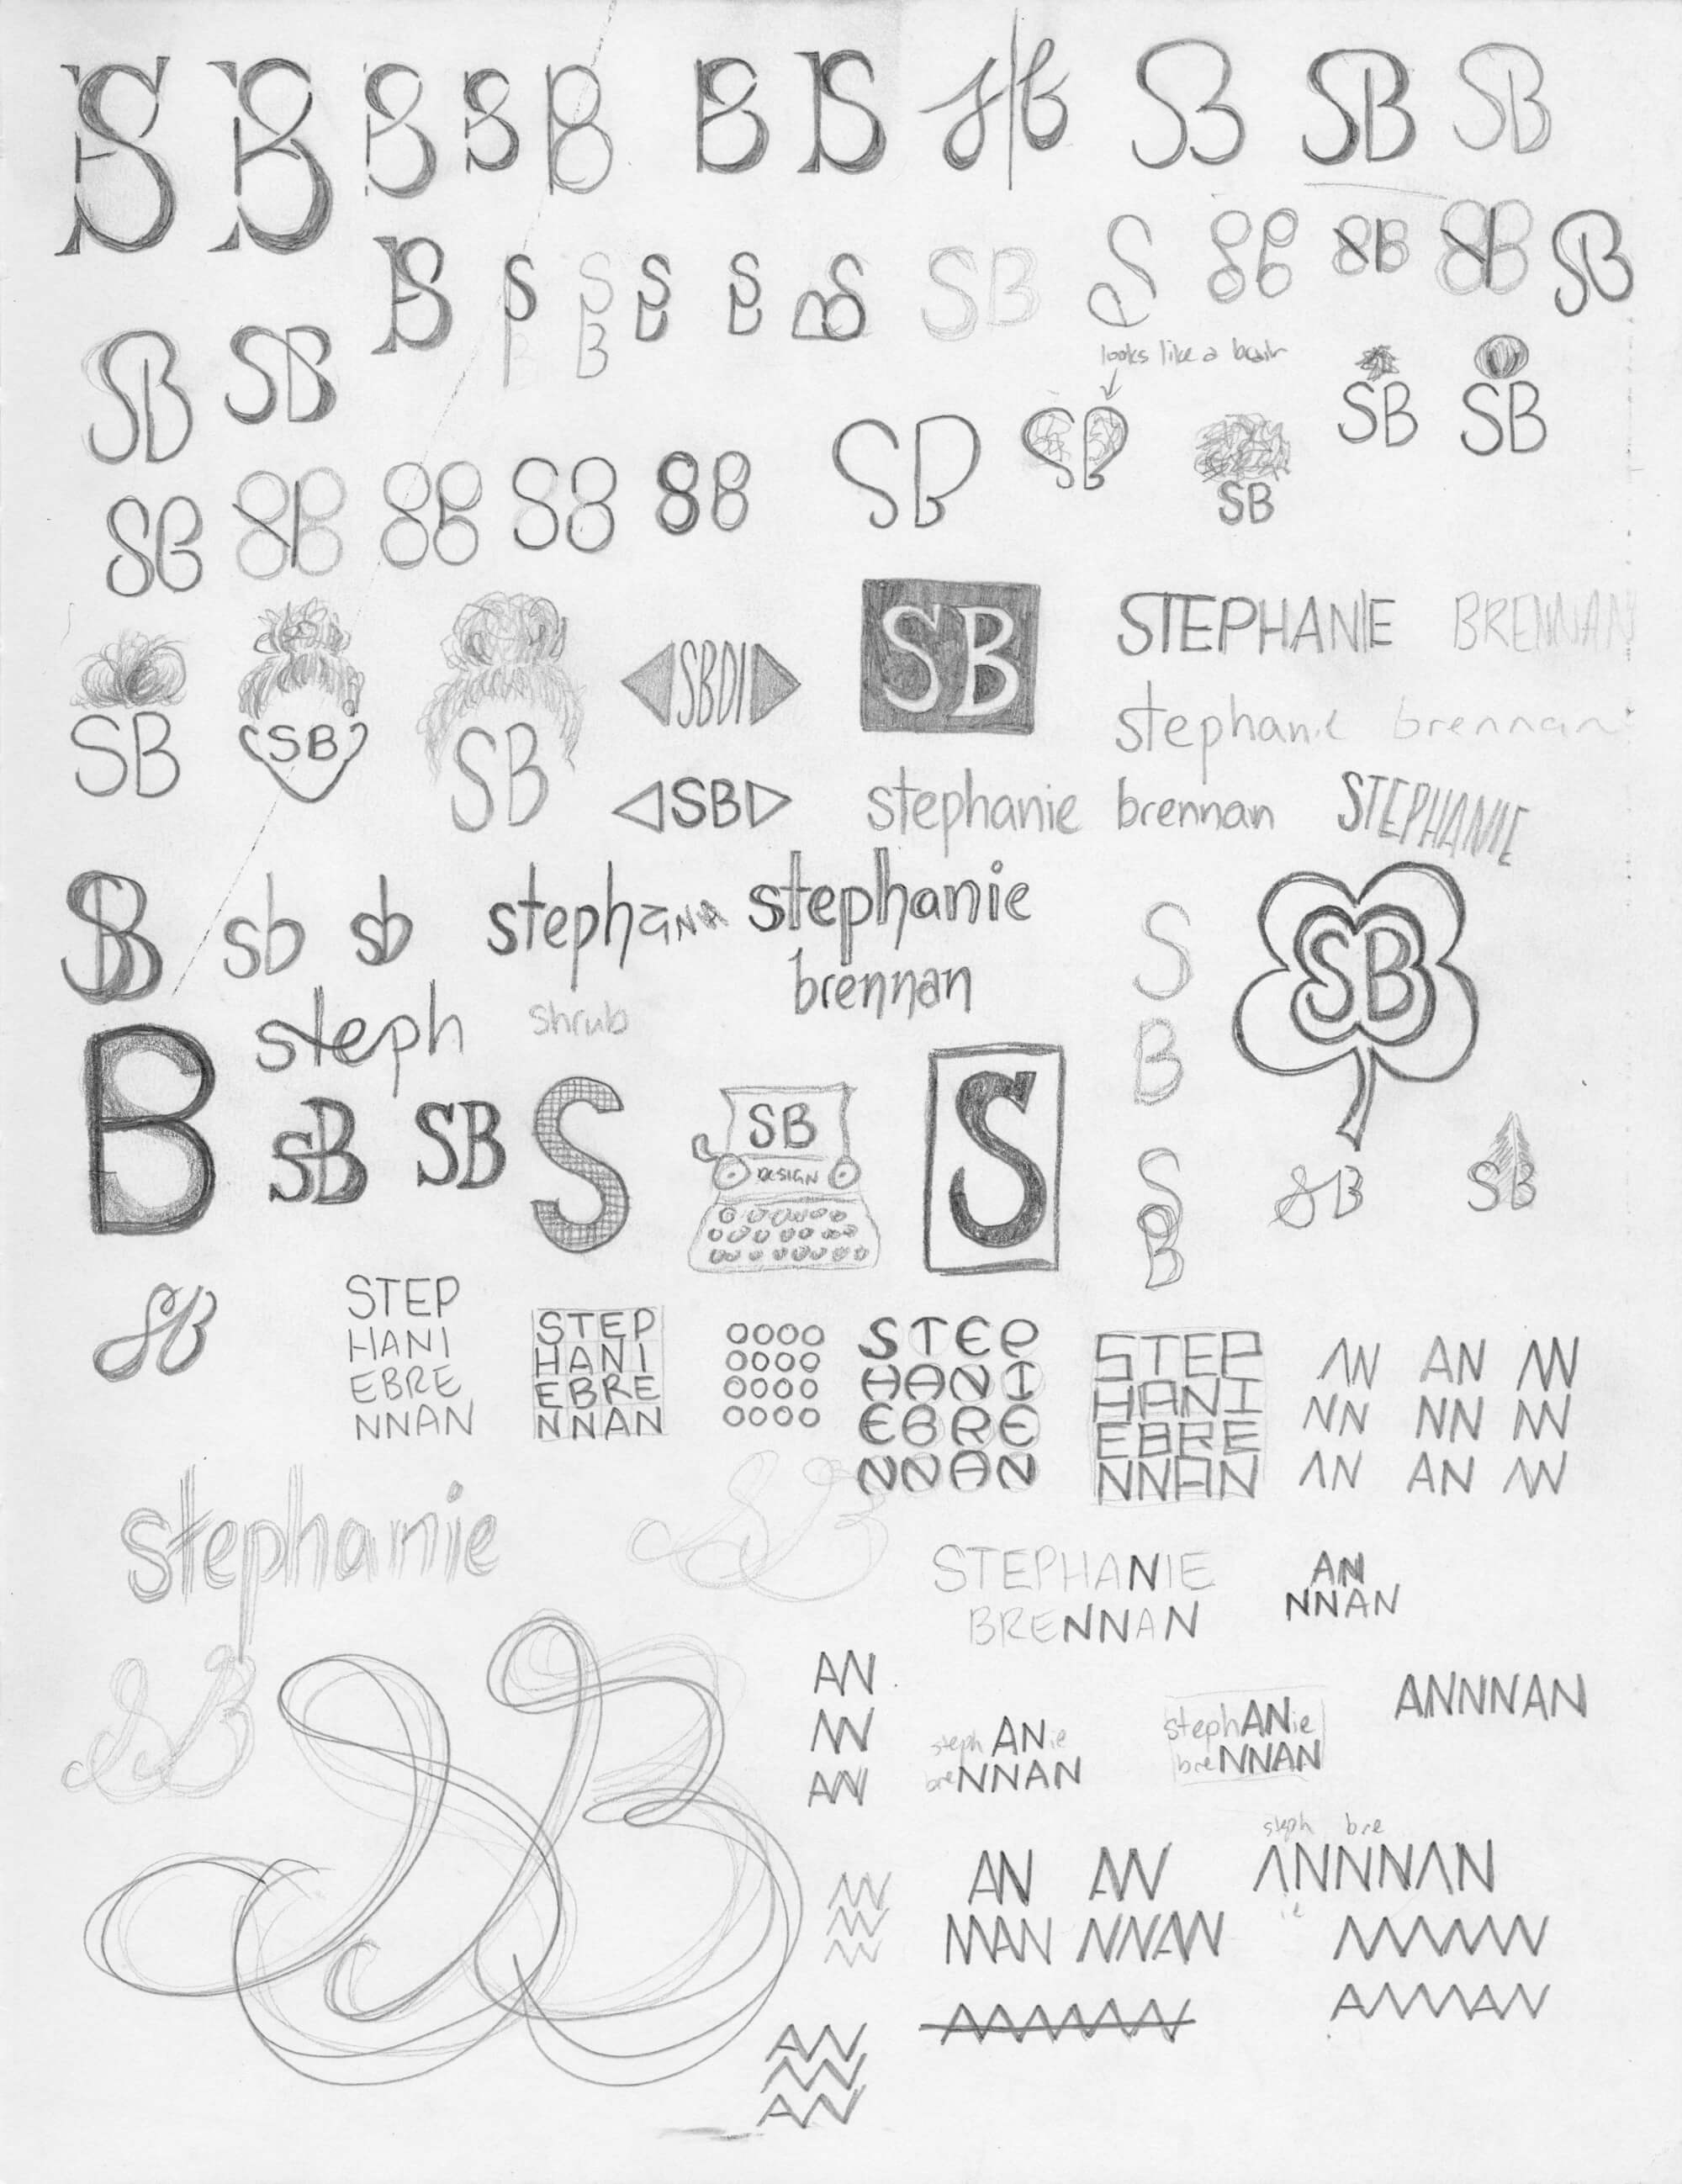 SB SB SB SB SB SB SB sb SB SB SB
SB S SB SB SB SB SB S SB SB SB SB
looks like a brain
SB SB SB SB SB SB SB
SB SB SB SB SB
SB SB SB SBDI SB STEPHANIE BRENNAN
stephanie brennan
SB stephanie brennan STEPHANIE
SB sb sb steph stephanie
brennan
S
B
SB
steph shrub
B SB SB S SB S
DESIGN
S
B
SB SB
SB
STEP
HANI
EBRE
NNAN
STEP
HANI
EBRE
NNAN
STEP
HANI
EBRE
NNAN
STEP
HANI
EBRE
NNAN
AN AN AN
NN NN NN
AN AN AN
stephanie SB
STEPHANIE
BRENNAN
AN
NNAN
SB SB
AN
NN
AN
stephANie
breNNAN
stephANie
breNNAN
ANNNAN
steph bre
ANNNAN
ie
AN AN
NNAN NNAN
AN
NN
AN